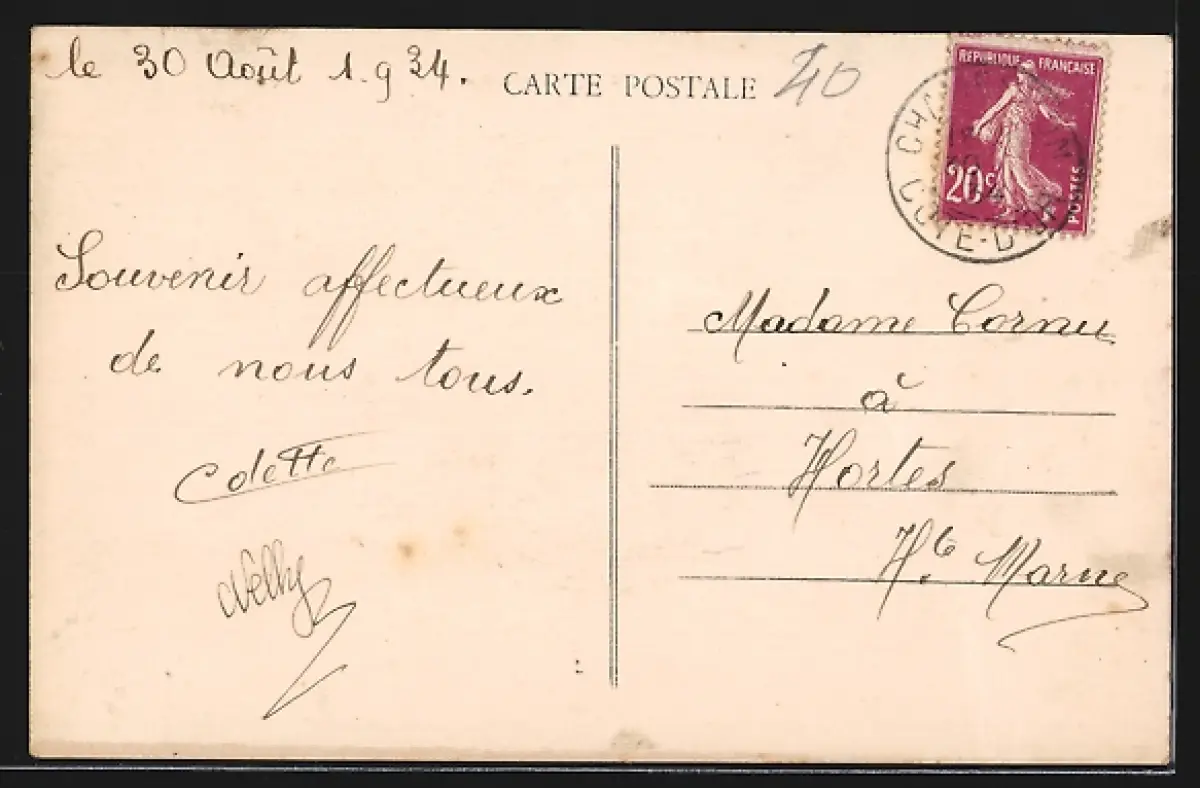 le 30 Août 1934.
CARTE POSTALE
40
REPUBLIQUE FRANÇAISE
20c
POSTES
COTE-D'OR
Souvenir affectueux
de nous tous.
Colette
Nelly
Madame Cornu
à
Hortes
Hte Marne